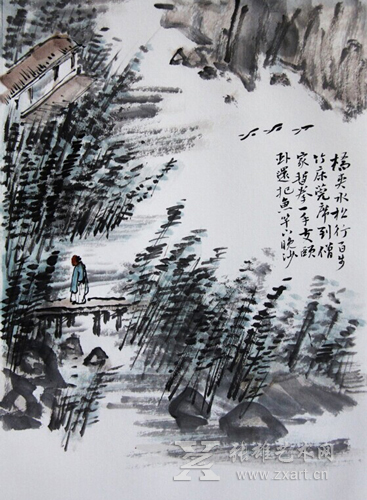 橋夾水松行百步
竹床莞席到僧
家暫拳一手支頤
卧還把魚竿下晚沙
艺术网
www.zxart.cn